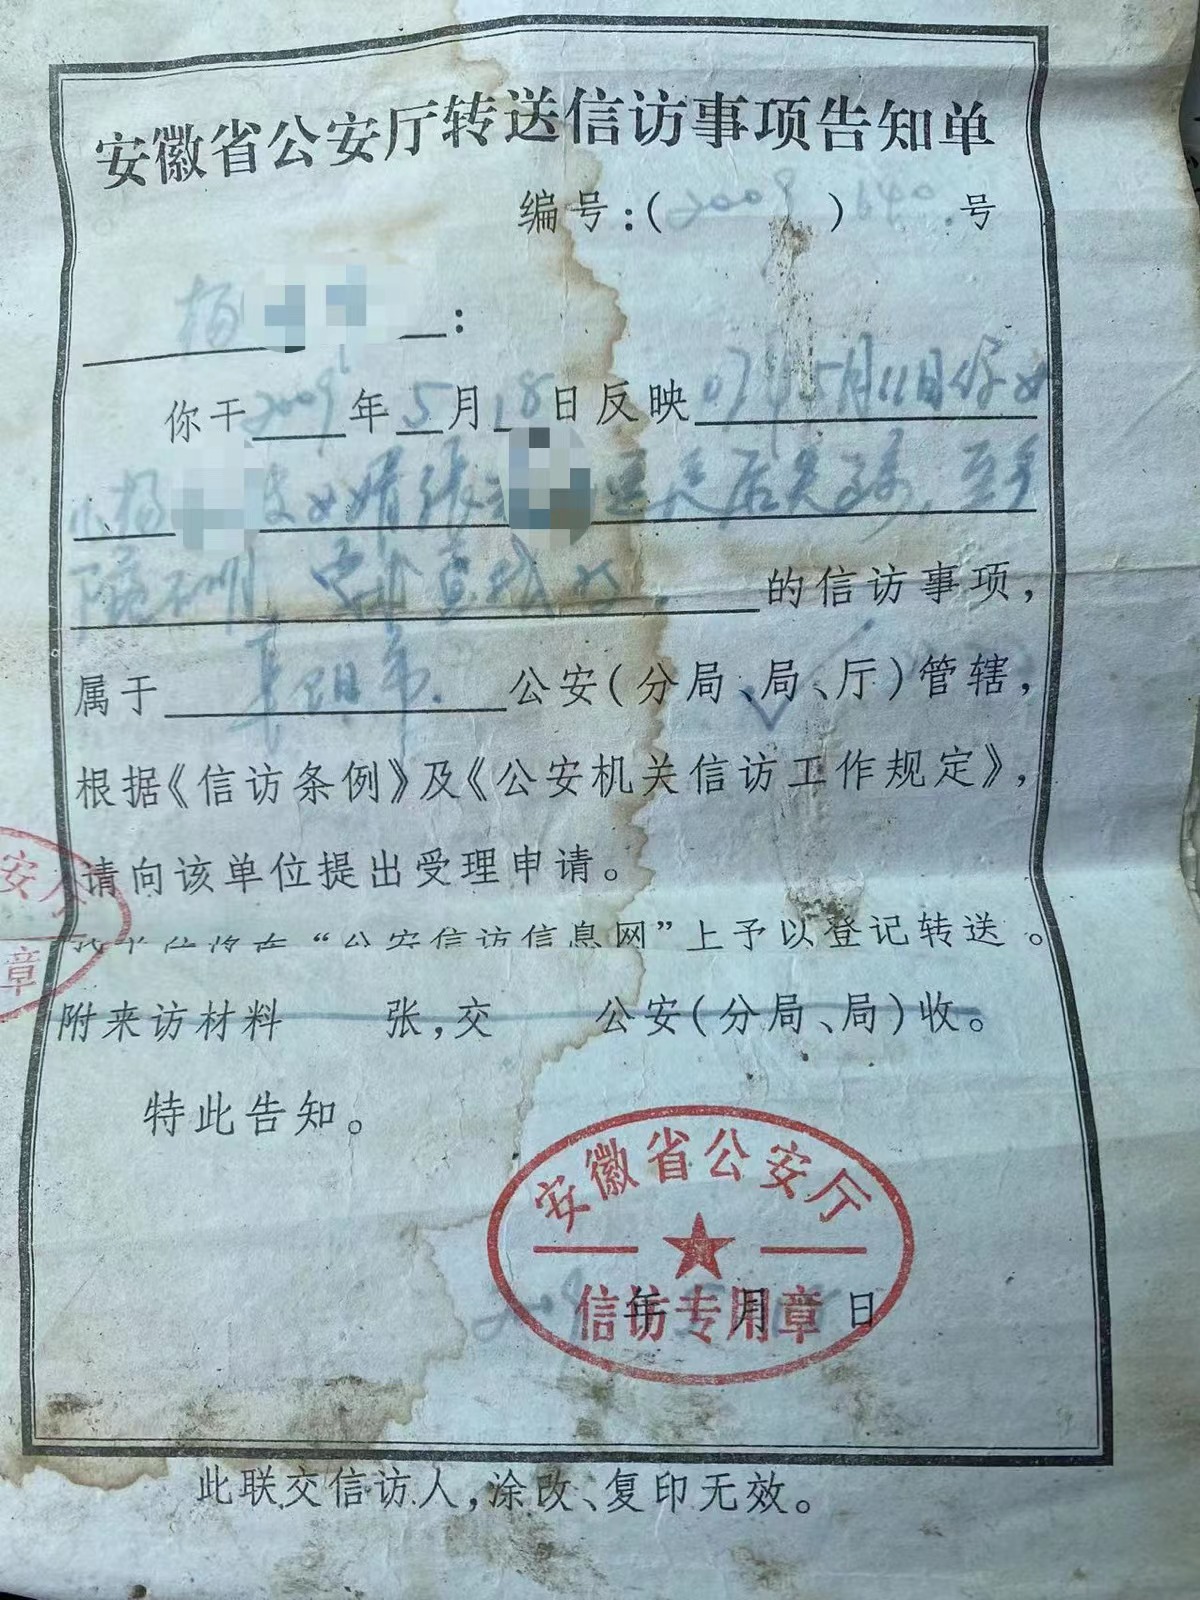 安徽省公安厅转送信访事项告知单
编号:(2009)640号
杨:
你于2009年5月18日反映07年5月11日你女
小杨被女婿张走后失踪,至今
下落不明,要求查找
的信访事项,
属于阜阳市公安(分局、局、厅)管辖,
根据《信访条例》及《公安机关信访工作规定》,
请向该单位提出受理申请。
“公安信访信息网”上予以登记转送。
附来访材料 张,交 公安(分局、局)收。
特此告知。
安徽省公安厅
信访专用章
2009年 月 日
此联交信访人,涂改、复印无效。
安
章